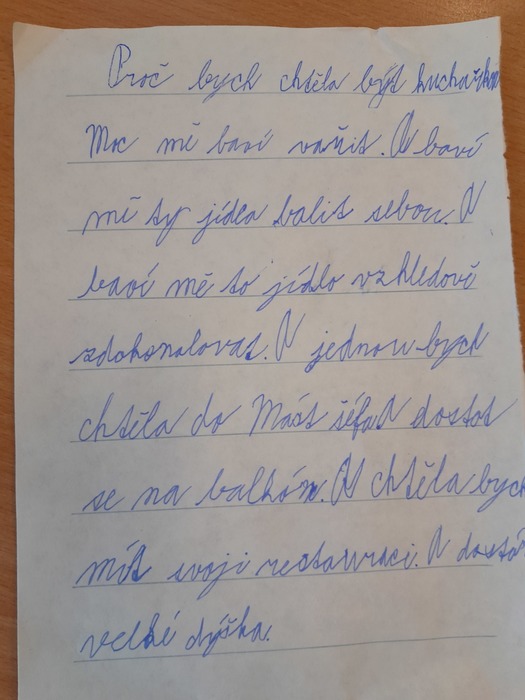 Proč bych chtěla být kuchařkou
Moc mě baví vařit. A baví
mě ty jídla balit sebou. A
baví mě to jídlo vzhledově
zdokonalovat. A jednou bych
chtěla do Mást šéfa A dostat
se na balkón. A chtěla bych
mít svoji restauraci. A dostat
velké dýška.